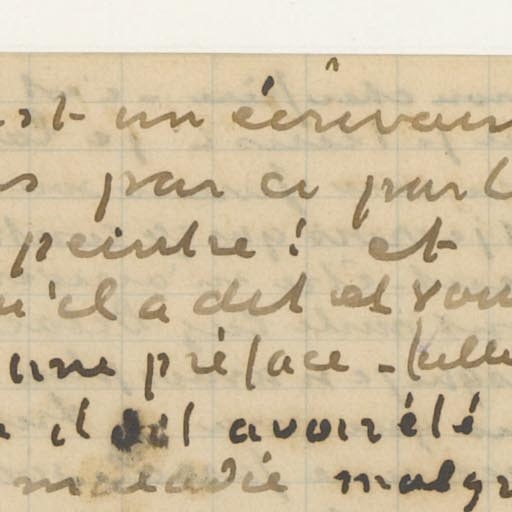 est un écrivain
par ci par l
peintre! et
qu'il a dit et vou
une préface - (elle
il doit avoir été
maladie malgr